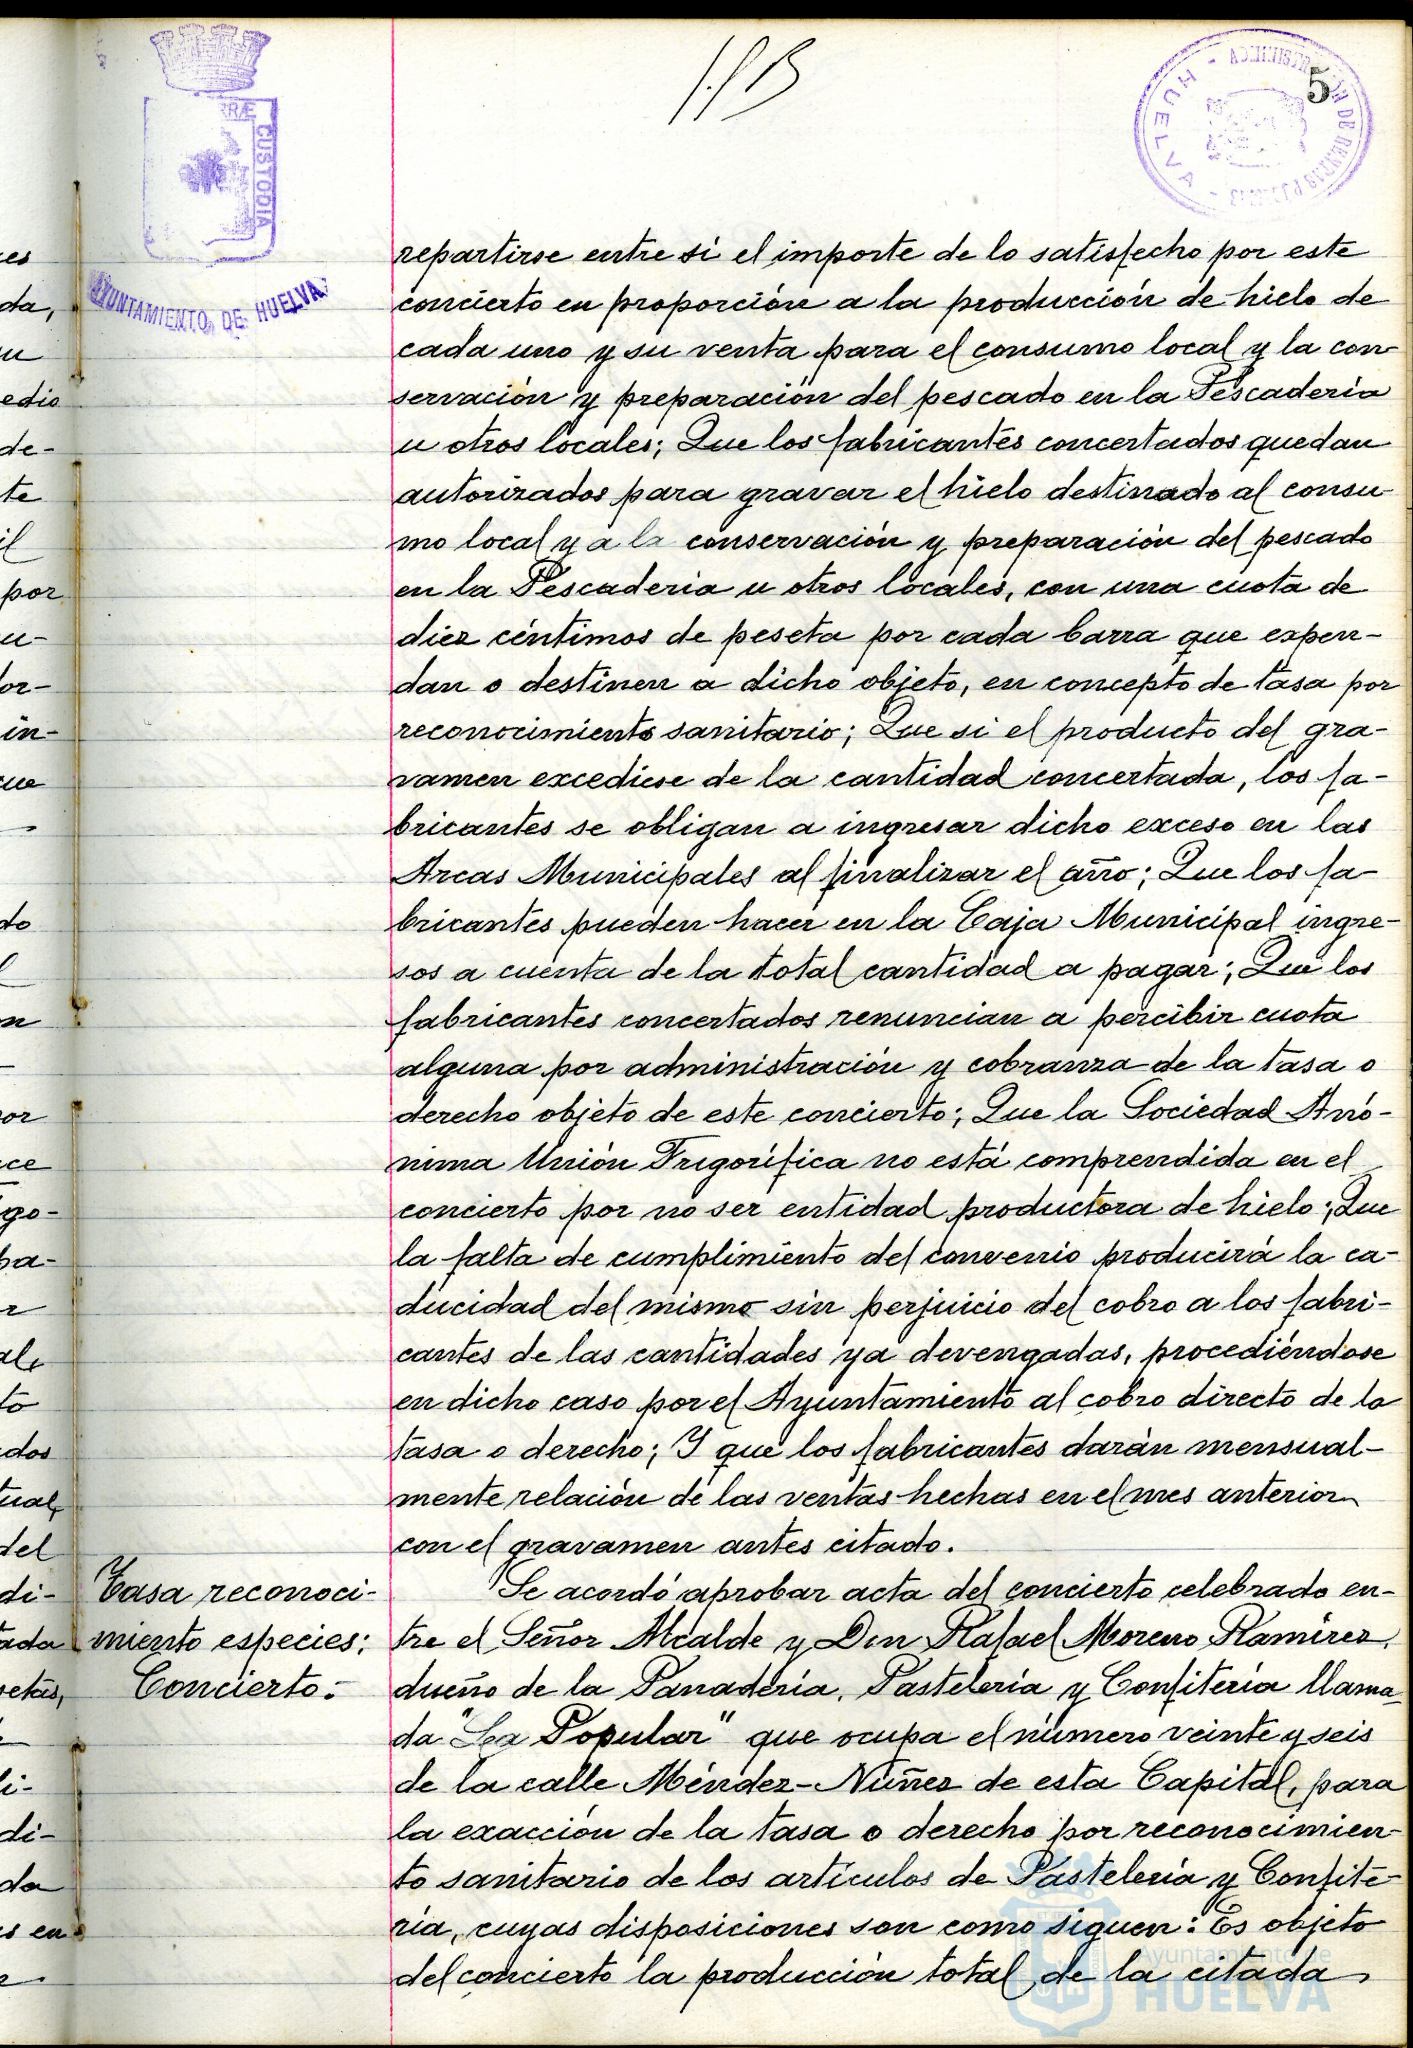 5
RÆ CUSTODIA
AYUNTAMIENTO DE HUELVA
HUELVA
repartirse entre sí el importe de lo satisfecho por este
concierto en proporción a la producción de hielo de
cada uno y su venta para el consumo local y la con
servación y preparación del pescado en la Pescadería
u otros locales; Que los fabricantes concertados quedan
autorizados para gravar el hielo destinado al consu-
mo local y a la conservación y preparación del pescado
en la Pescadería u otros locales, con una cuota de
diez céntimos de peseta por cada barra que expen-
dan o destinen a dicho objeto, en concepto de tasa por
reconocimiento sanitario; Que si el producto del gra-
vamen excediese de la cantidad concertada, los fa-
bricantes se obligan a ingresar dicho exceso en las
Arcas Municipales al finalizar el año; Que los fa-
bricantes pueden hacer en la Caja Municipal ingre-
sos a cuenta de la total cantidad a pagar; Que los
fabricantes concertados renuncian a percibir cuota
alguna por administración y cobranza de la tasa o
derecho objeto de este concierto; Que la Sociedad Anó-
nima Unión Frigorífica no está comprendida en el
concierto por no ser entidad productora de hielo; Que
la falta de cumplimiento del convenio producirá la ca-
ducidad del mismo sin perjuicio del cobro a los fabri-
cantes de las cantidades ya devengadas, procediéndose
en dicho caso por el Ayuntamiento al cobro directo de la
tasa o derecho; Y que los fabricantes darán mensual-
mente relación de las ventas hechas en el mes anterior
con el gravamen antes citado.
Tasa reconoci-
miento especies:
Concierto.-
Se acordó aprobar acta del concierto celebrado en-
tre el Señor Alcalde y Don Rafael Moreno Ramírez,
dueño de la Panadería, Pastelería y Confitería llama-
da "La Popular" que ocupa el número veinte y seis
de la calle Méndez-Núñez de esta Capital, para
la exacción de la tasa o derecho por reconocimien-
to sanitario de los artículos de Pastelería y Confite-
ría, cuyas disposiciones son como siguen: Es objeto
del concierto la producción total de la citada
Ayuntamiento de
HUELVA